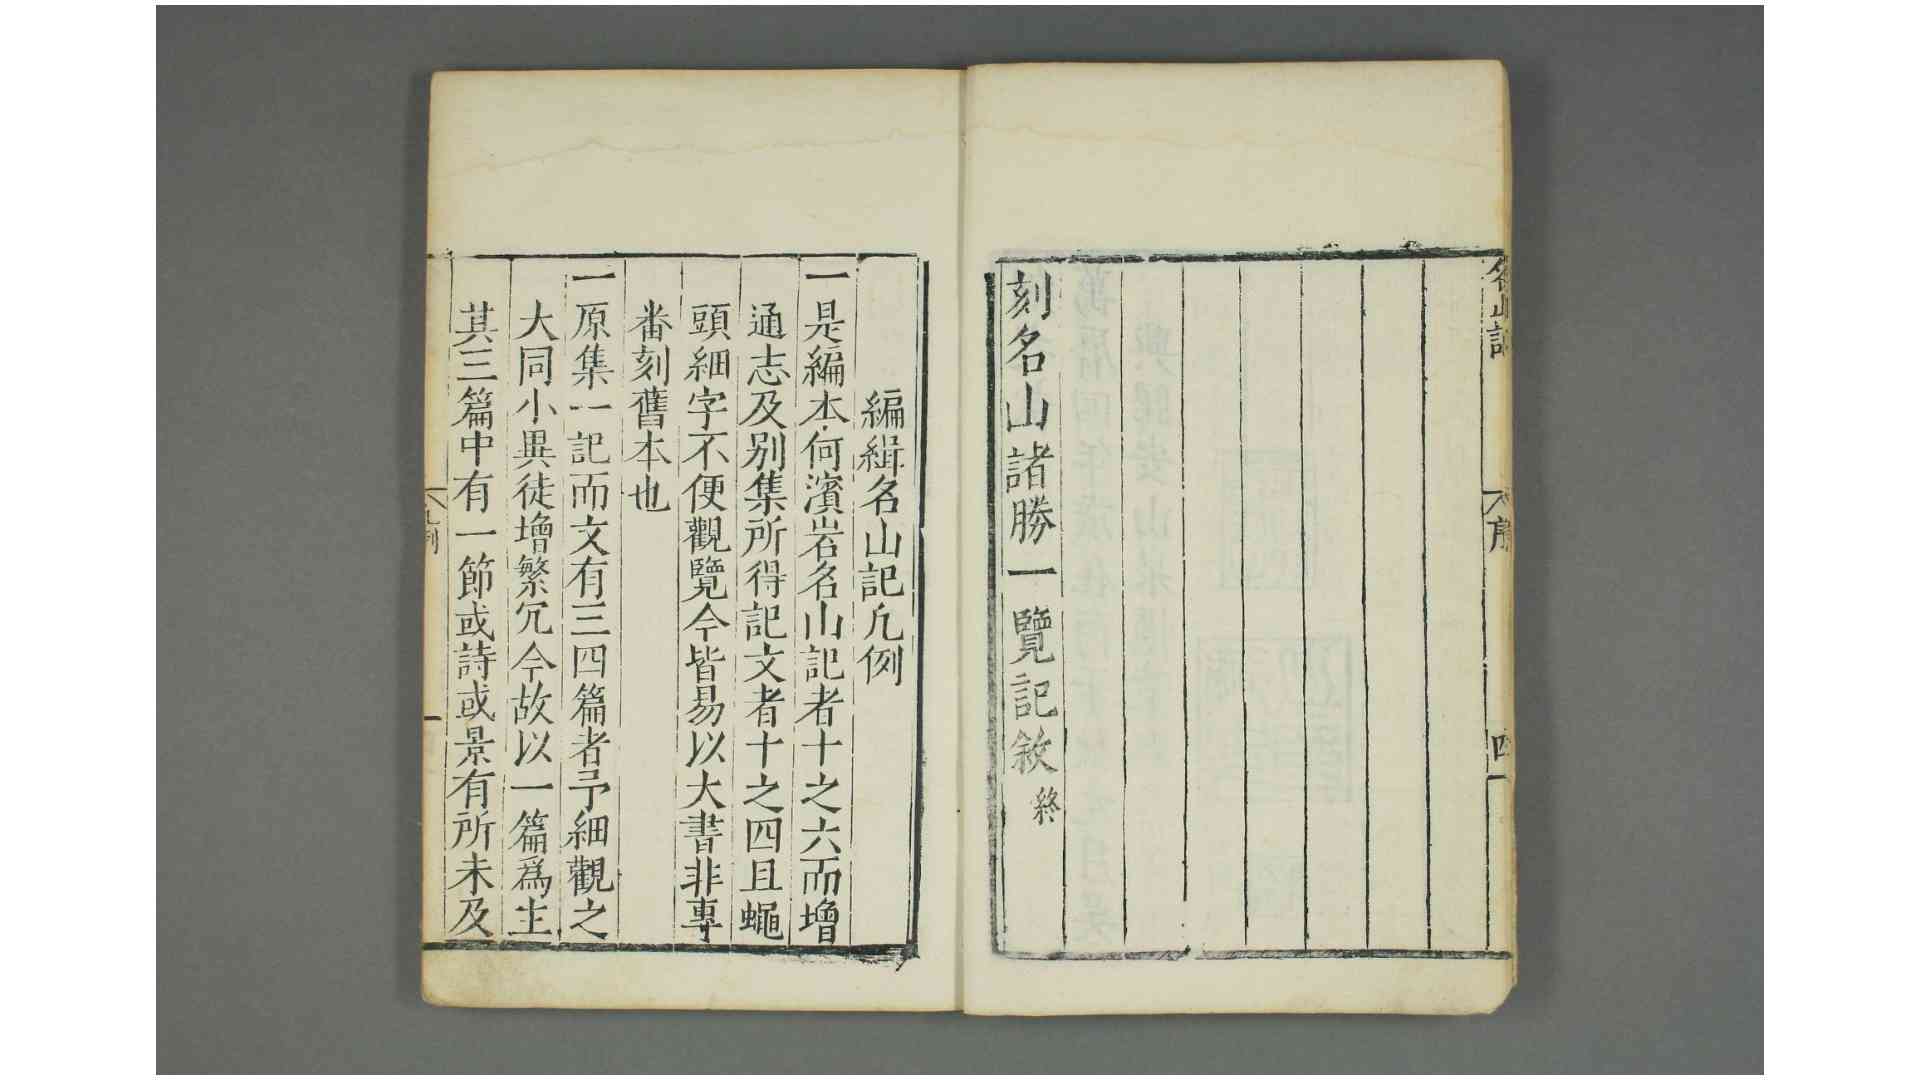 名山記
序
四
刻名山諸勝一覽記敘終
編緝名山記凡例
一是編本何濱岩名山記者十之六而增
通志及别集所得記文者十之四且蠅
頭細字不便觀覽今皆易以大書非專
番刻舊本也
一原集一記而文有三四篇者予細觀之
大同小異徒增繁冗今故以一篇爲主
其三篇中有一節或詩或景有所未及
凡例
一